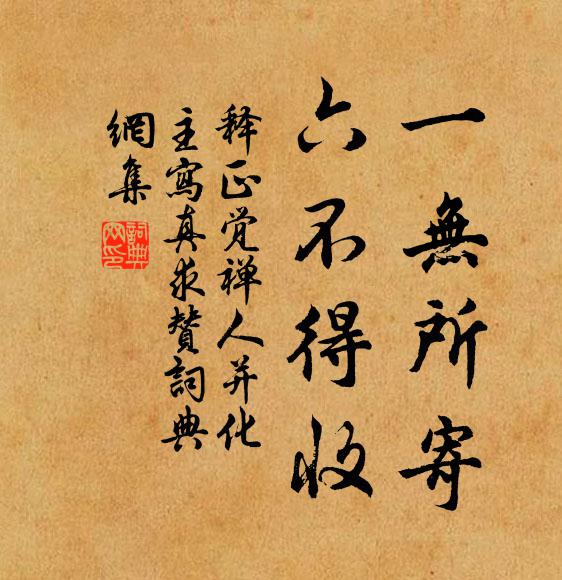 一無所寄
六不得收
释正觉禅人并化
主寫真求贊詞典
網集
詞典
网印